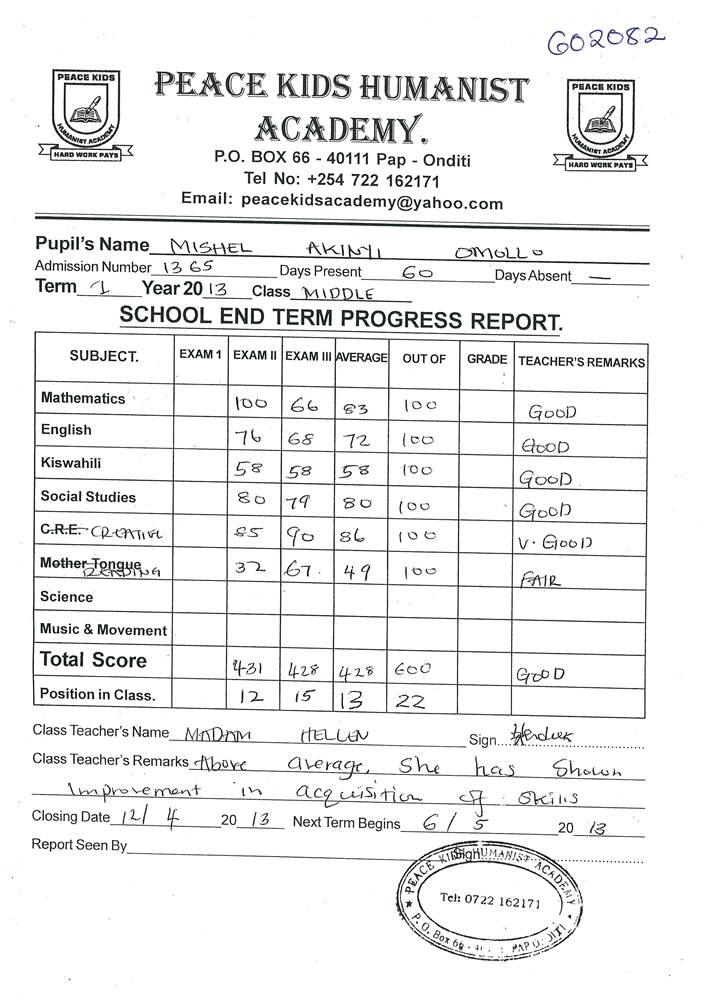 G02082
PEACE KIDS
HUMANIST ACADEMY
HARD WORK PAYS
PEACE KIDS HUMANIST
ACADEMY.
PEACE KIDS
HUMANIST ACADEMY
HARD WORK PAYS
P.O. BOX 66 - 40111 Pap - Onditi
Tel No: +254 722 162171
Email: peacekidsacademy@yahoo.com
Pupil's Name MISHEL AKINYI OMOLLO
Admission Number 1365 Days Present 60 Days Absent —
Term 1 Year 2013 Class MIDDLE
SCHOOL END TERM PROGRESS REPORT.
SUBJECT. EXAM 1 EXAM II EXAM III AVERAGE OUT OF GRADE TEACHER'S REMARKS
Mathematics 100 66 83 100 GOOD
English 76 68 72 100 GOOD
Kiswahili 58 58 58 100 GOOD
Social Studies 80 79 80 100 GOOD
C.R.E. CREATIVE 85 90 86 100 V. GOOD
Mother Tongue READING 32 67. 49 100 FAIR
Science
Music & Movement
Total Score 431 428 428 600 GOOD
Position in Class. 12 15 13 22
Class Teacher's Name MADAM HELLEN Sign...
Class Teacher's Remarks Above average, She has Shown
Improvement in acquisition of skills
Closing Date 12/ 4 2013 Next Term Begins 6/5 2013
Report Seen By Sign
PEACE KIDS HUMANIST ACADEMY
Tel: 0722 162171
P.O. Box 66